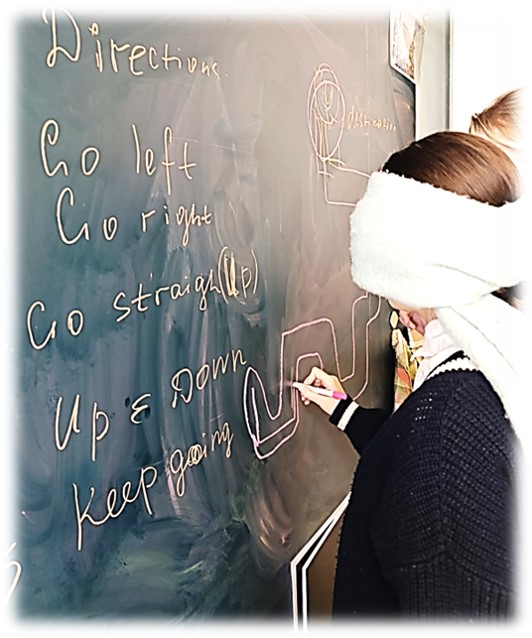 Directions
destination
Go left
Go right
Go straigh(Up)
Up & Down
Keep going